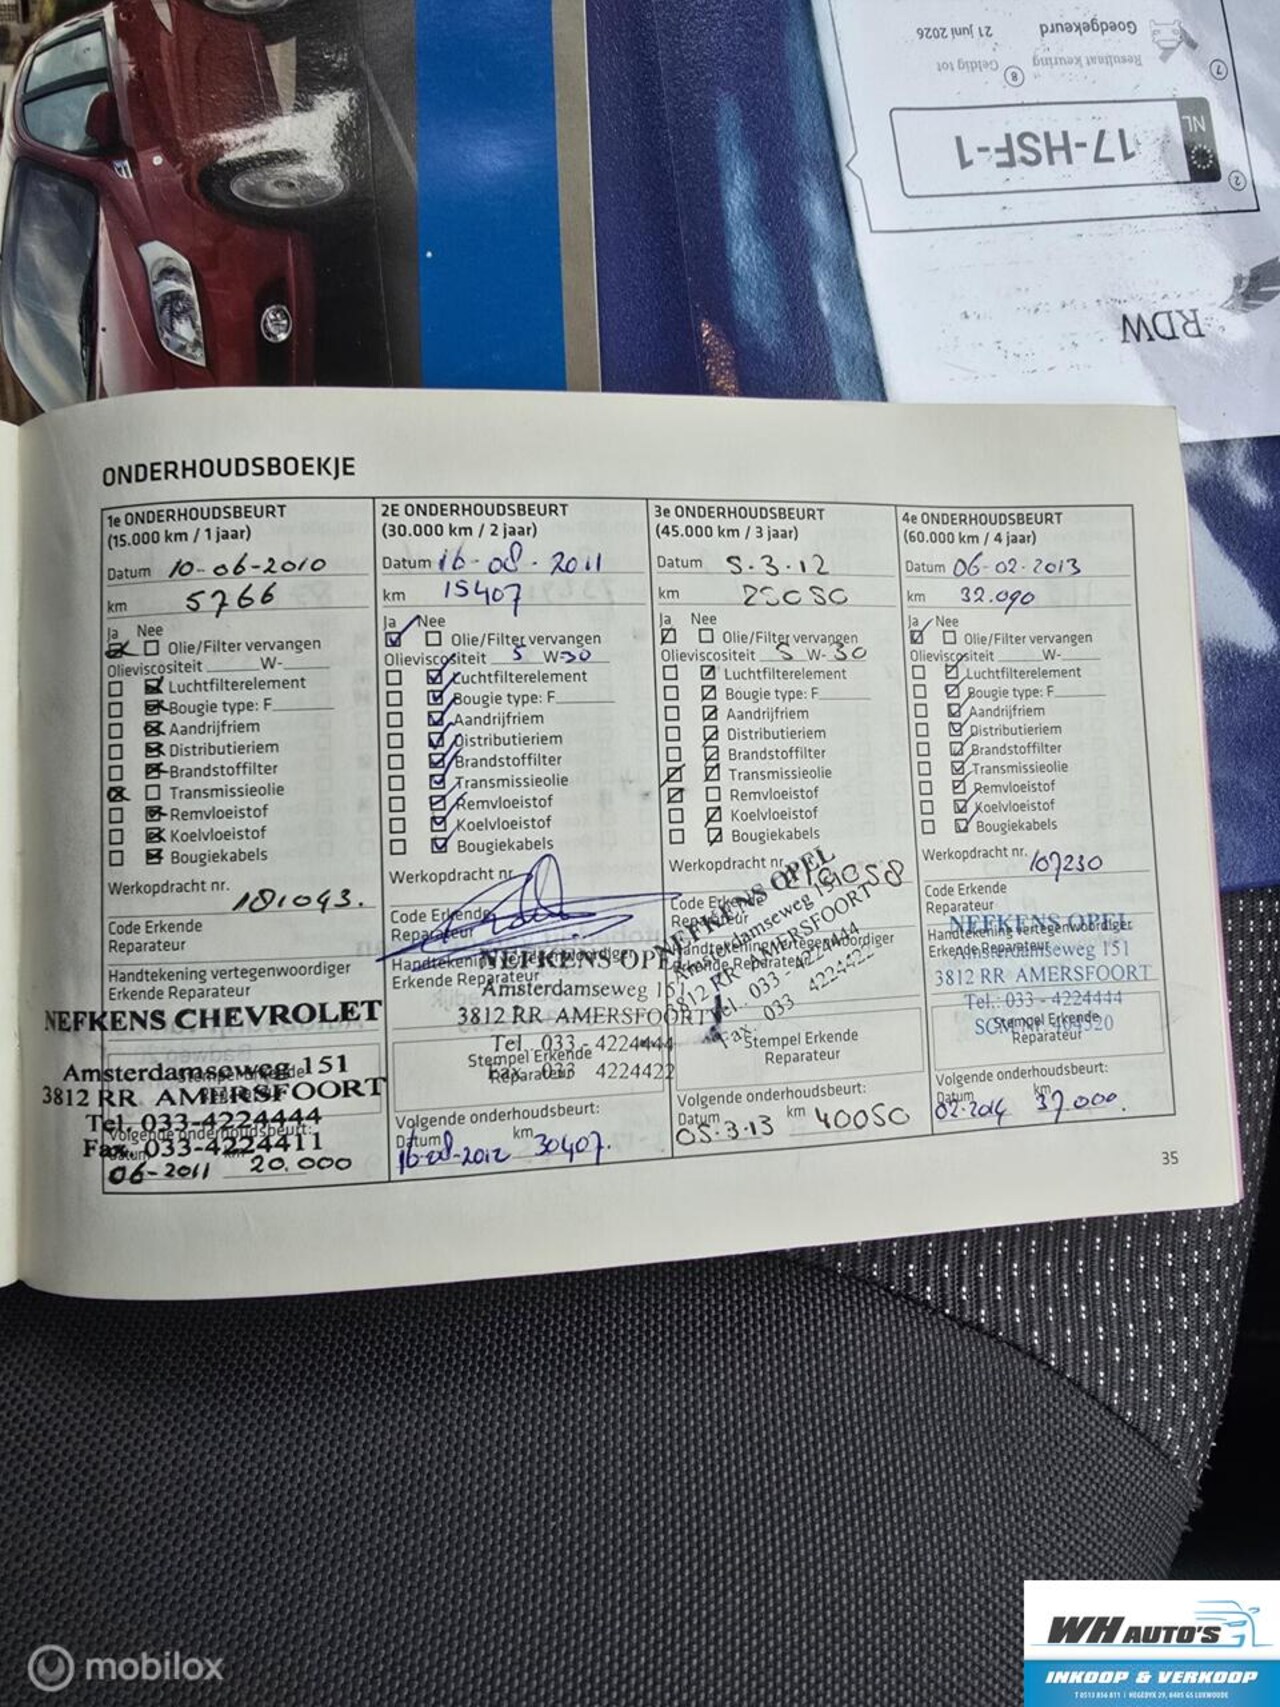 Goedgekeurd
21 juni 2026
Resultaat keuring
Geldig tot
7
8
17-HSF-1
NL
2
RDW
ONDERHOUDSBOEKJE
1e ONDERHOUDSBEURT
(15.000 km / 1 jaar)
Datum 10-06-2010
km 5766
Ja Nee
Olie/Filter vervangen
Olieviscositeit W-
Luchtfilterelement
Bougie type: F
Aandrijfriem
Distributieriem
Brandstoffilter
Transmissieolie
Remvloeistof
Koelvloeistof
Bougiekabels
Werkopdracht nr.
181043.
Code Erkende
Reparateur
Handtekening vertegenwoordiger
Erkende Reparateur
NEFKENS CHEVROLET
Amsterdamseweg 151
3812 RR AMERSFOORT
Tel. 033-4224444
Fax. 033-4224411
Volgende onderhoudsbeurt:
06-2011 20.000
2E ONDERHOUDSBEURT
(30.000 km / 2 jaar)
Datum 16-08-2011
km 15407
Ja Nee
Olie/Filter vervangen
Olieviscositeit 5 W-30
Luchtfilterelement
Bougie type: F
Aandrijfriem
Distributieriem
Brandstoffilter
Transmissieolie
Remvloeistof
Koelvloeistof
Bougiekabels
Werkopdracht nr.
Code Erkende
Reparateur
Handtekening vertegenwoordiger
Erkende Reparateur
NEFKENS OPEL
Amsterdamseweg 151
3812 RR AMERSFOORT
Tel. 033 - 4224444
Fax. 033 4224422
Stempel Erkende
Reparateur
Volgende onderhoudsbeurt:
Datum km
16-08-2012 30407.
3e ONDERHOUDSBEURT
(45.000 km / 3 jaar)
Datum 5.3.12
km 25050
Ja Nee
Olie/Filter vervangen
Olieviscositeit 5 W-30
Luchtfilterelement
Bougie type: F
Aandrijfriem
Distributieriem
Brandstoffilter
Transmissieolie
Remvloeistof
Koelvloeistof
Bougiekabels
Werkopdracht nr.
Code Erkende
Reparateur
Handtekening vertegenwoordiger
Erkende Reparateur
NEFKENS OPEL
Amsterdamseweg 151
3812 RR AMERSFOORT
Tel. 033 - 4224444
Fax. 033 4224422
Stempel Erkende
Reparateur
Volgende onderhoudsbeurt:
Datum km
05.3.13 40050
4e ONDERHOUDSBEURT
(60.000 km / 4 jaar)
Datum 06-02-2013
km 32.090
Ja Nee
Olie/Filter vervangen
Olieviscositeit W-
Luchtfilterelement
Bougie type: F
Aandrijfriem
Distributieriem
Brandstoffilter
Transmissieolie
Remvloeistof
Koelvloeistof
Bougiekabels
Werkopdracht nr. 107230
Code Erkende
Reparateur
Handtekening vertegenwoordiger
Erkende Reparateur
NEFKENS OPEL
Amsterdamseweg 151
3812 RR AMERSFOORT
Tel.: 033 - 4224444
Stempel Erkende
Reparateur
Volgende onderhoudsbeurt:
Datum km
02-2014 37.000.
35
mobilox
WH AUTO'S
INKOOP & VERKOOP